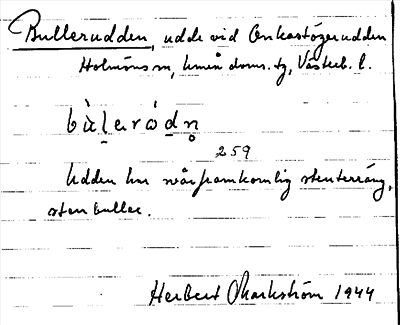 Bullerudden, udde vid Enkastögerudden
Holmöns sn, Umeå doms. tg, Västerb. l.
bùl̠ɐród̠n̥
259
Udden har svårframkomlig stenterräng,
stenbuller.
Herbert Markström 1944